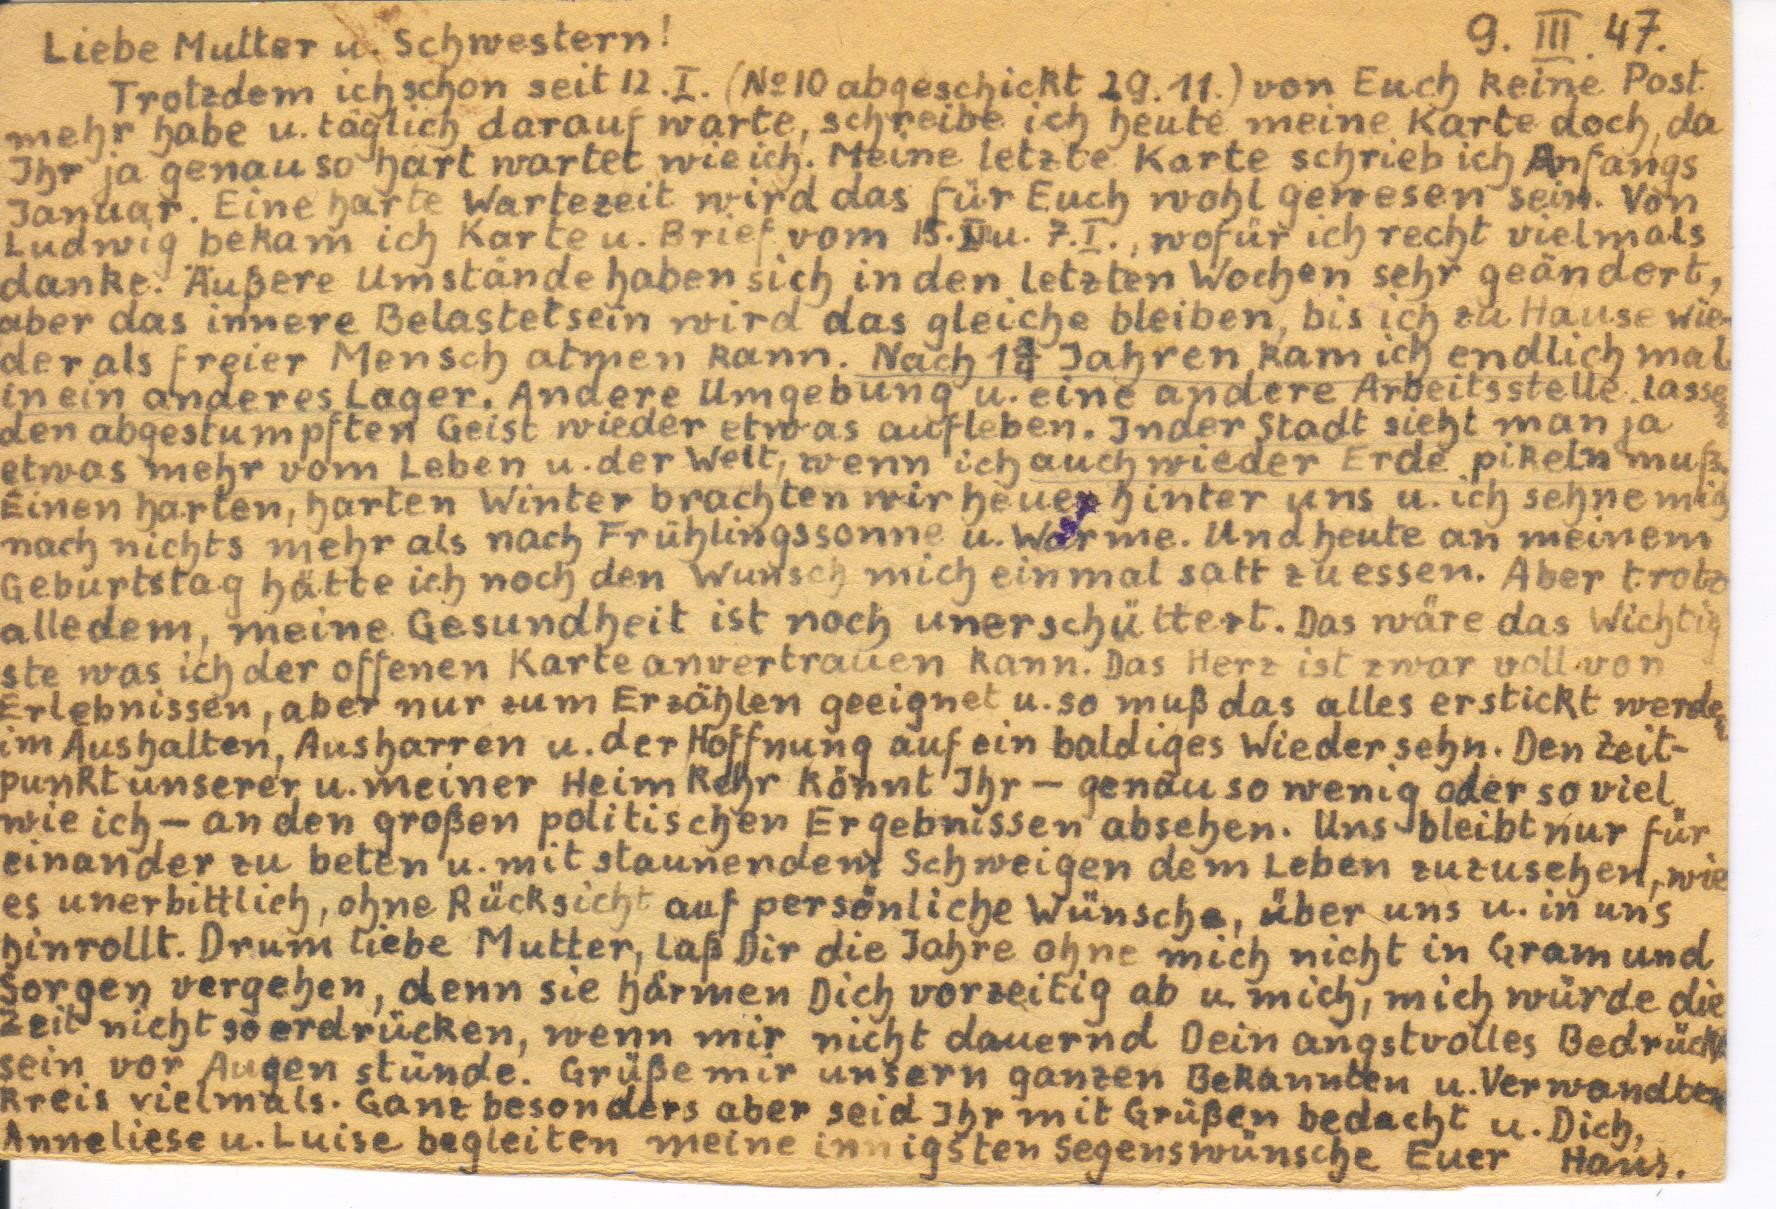 9. III. 47.
Liebe Mutter u. Schwestern!
Trotzdem ich schon seit 12. I. (No 10 abgeschickt 29. 11.) von Euch keine Post
mehr habe u. täglich darauf warte, schreibe ich heute meine Karte doch, da
Ihr ja genau so hart wartet wie ich. Meine letzte Karte schrieb ich Anfangs
Januar. Eine harte Wartezeit wird das für Euch wohl gewesen sein. Von
Ludwig bekam ich Karte u. Brief vom u. 7. I., wofür ich recht vielmals
danke. Äußere Umstände haben sich in den letzten Wochen sehr geändert,
aber das innere Belastetsein wird das gleiche bleiben, bis ich zu Hause wie-
der als freier Mensch atmen kann. Nach 1¾ Jahren kam ich endlich mal
in ein anderes Lager. Andere Umgebung u. eine andere Arbeitsstelle lassen
den abgestumpften Geist wieder etwas aufleben. In der Stadt sieht man ja
etwas mehr vom Leben u. der Welt, wenn ich auch wieder Erde pikeln muß.
Einen harten, harten Winter brachten wir heuer hinter uns u. ich sehne mich
nach nichts mehr als nach Frühlingssonne u. Wärme. Und heute an meinem
Geburtstag hätte ich noch den Wunsch mich einmal satt zu essen. Aber trotz
alledem, meine Gesundheit ist noch unerschüttert. Das wäre das Wichtig
ste was ich der offenen Karte anvertrauen kann. Das Herz ist zwar voll von
Erlebnissen, aber nur zum Erzählen geeignet u. so muß das alles erstickt werden
im Aushalten, Ausharren u. der Hoffnung auf ein baldiges Wiedersehn. Den Zeit-
punkt unserer u. meiner Heimkehr könnt Ihr – genau so wenig oder so viel
wie ich – an den großen politischen Ergebnissen absehen. Uns bleibt nur für
einander zu beten u. mit staunendem Schweigen dem Leben zuzusehen, wie
es unerbittlich, ohne Rücksicht auf persönliche Wünsche, über uns u. in uns
hinrollt. Drum liebe Mutter, laß Dir die Jahre ohne mich nicht in Gram und
Sorgen vergehen, denn sie härmen Dich vorzeitig ab u. mich, mich würde die
Zeit nicht so erdrücken, wenn mir nicht dauernd Dein angstvolles Bedrückt
sein vor Augen stünde. Grüße mir unsern ganzen Bekannten u. Verwandten
Kreis vielmals. Ganz besonders aber seid Ihr mit Grüßen bedacht u. Dich,
Anneliese u. Luise begleiten meine innigsten Segenswünsche Euer Hans.